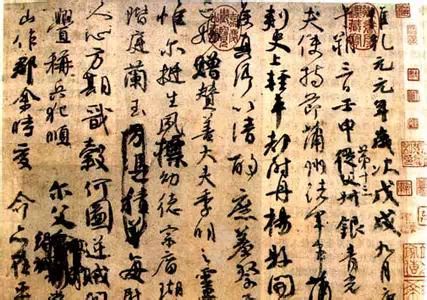 維乾元元年歲次戊戌九月庚
午朔三日壬申第十三從父銀青光
夫使持節蒲州諸軍事蒲
刺史上輕車都尉丹楊縣開
侯真卿以清酌庶羞祭
姪贈贊善大夫季明之靈
惟爾挺生夙標幼德宗廟瑚
階庭蘭玉方憑積善每慰
人心方期戩穀何圖逆賊
釁稱兵犯順爾父
山作郡余時受命亦在平